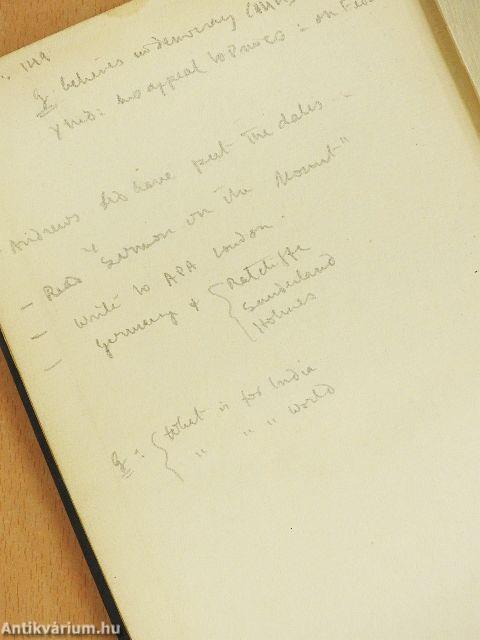 G believes in democracy
YMs: his appeal to Princes = on
Andrews sho have put the dates -
- Read "Sermon on the Mount"
- Write to APA London.
- Germany & { Ratcliffe
Sunderland
Holmes
G: { What is for India
" " " World
Antikvárium.hu